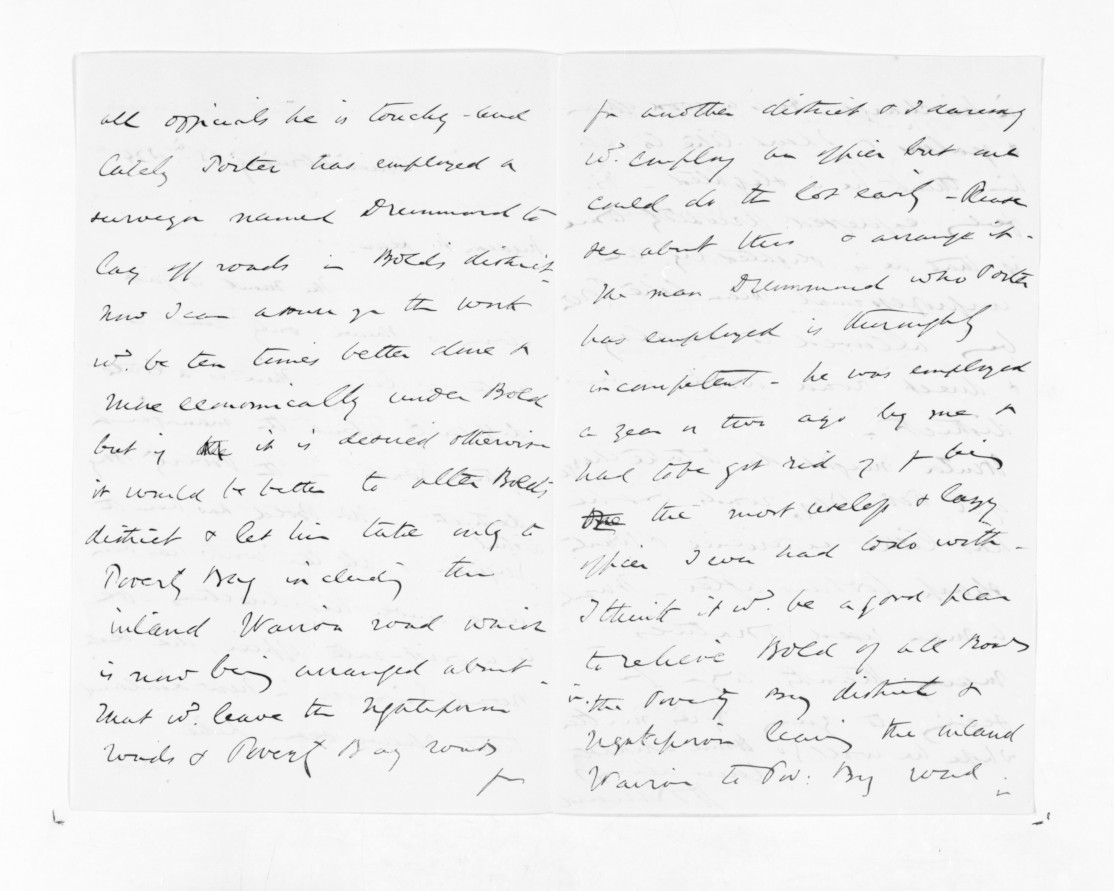 all officials he is touchy - and
lately Porter has employed a
surveyor named Drummond to
lay off roads in Bold's district.
Now I can assure you the work
wd. be ten times better done &
more economically under Bold
but if the it is desired otherwise
it would be better to alter Bold's
district & let him take only to
Poverty Bay including the
inland Wairoa road which
is now being arranged about.
That wd. leave the Ngatiporou
roads & Poverty Bay roads
for
for another district & I daresay
wd. employ an officer but one
could do the lot easily - Please
see about this & arrange it -
The man Drummond who Porter
has employed is thoroughly
incompetent - he was employed
a year or two ago by me &
had to be got rid of for being
One the most useless & lazy
officer I ever had to do with -
I think it wd. be a good plan
to relieve Bold of all Roads
in the Poverty Bay district &
Ngatiporou leaving the inland
Wairoa to Pov: Bay road